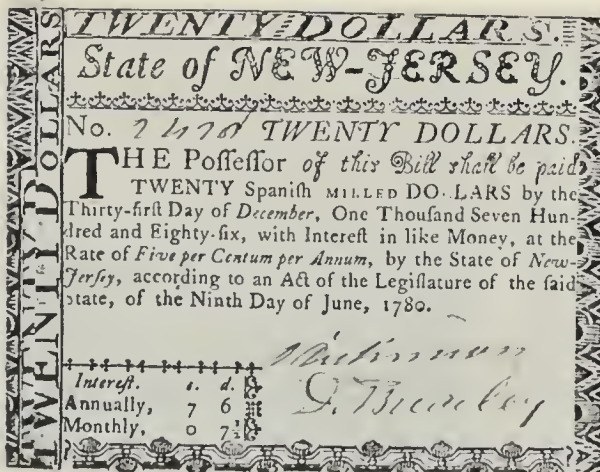 TWENTY DOLLARS.
TWENTY DOLLARS
TWENTY DOLLARS
State of NEW-JERSEY.
No. TWENTY DOLLARS.
THE Poſſeſſor of this Bill ſhall be paid
TWENTY Spaniſh MILLED DO..LARS by the
Thirty-firſt Day of December, One Thouſand Seven Hun-
dred and Eighty-ſix, with Intereſt in like Money, at the
Rate of Five per Centum per Annum, by the State of New-
Jerſey, according to an Act of the Legiſlature of the ſaid
State, of the Ninth Day of June, 1780.
Intereſt. s. d.
Annually, 7 6
Monthly, 0 7½